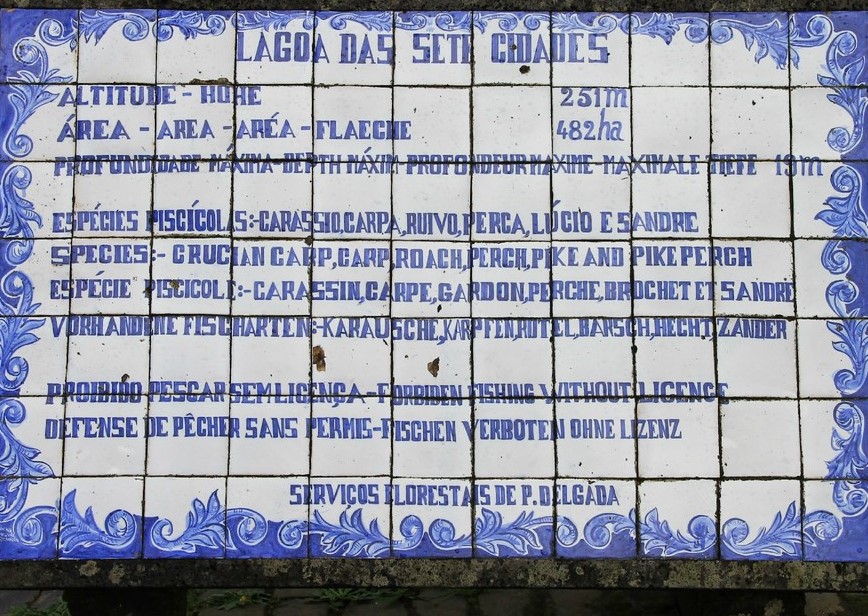 LAGOA DAS SETE CIDADES
ALTITUDE - HÖHE 251m
ÁREA - AREA - ARÉA - FLAECHE 482ha
PROFUNDIDADE MÁXIMA-DEPTH MÁXIM-PROFONDEUR MAXIME-MAXIMALE TIEFE 19m
ESPÉCIES PISCÍCOLAS:-CARASSIO,CARPA,RUIVO,PERCA,LÚCIO E SANDRE
SPECIES:- CRUCIAN CARP,CARP,ROACH,PERCH,PIKE AND PIKE PERCH
ESPÉCIE PISCICOLE:-CARASSIN,CARPE,GARDON,PERCHE,BROCHET ET SANDRE
VORHANDENE FISCHARTEN:-KARAUSCHE,KARPFEN,ROTEL,BARSCH,HECHT,ZANDER
PROIBIDO PESCAR SEM LICENÇA-FORBIDEN FISHING WITHOUT LICENCE
DEFENSE DE PÊCHER SANS PERMIS-FISCHEN VERBOTEN OHNE LIZENZ
SERVIÇOS FLORESTAIS DE P. DELGADA